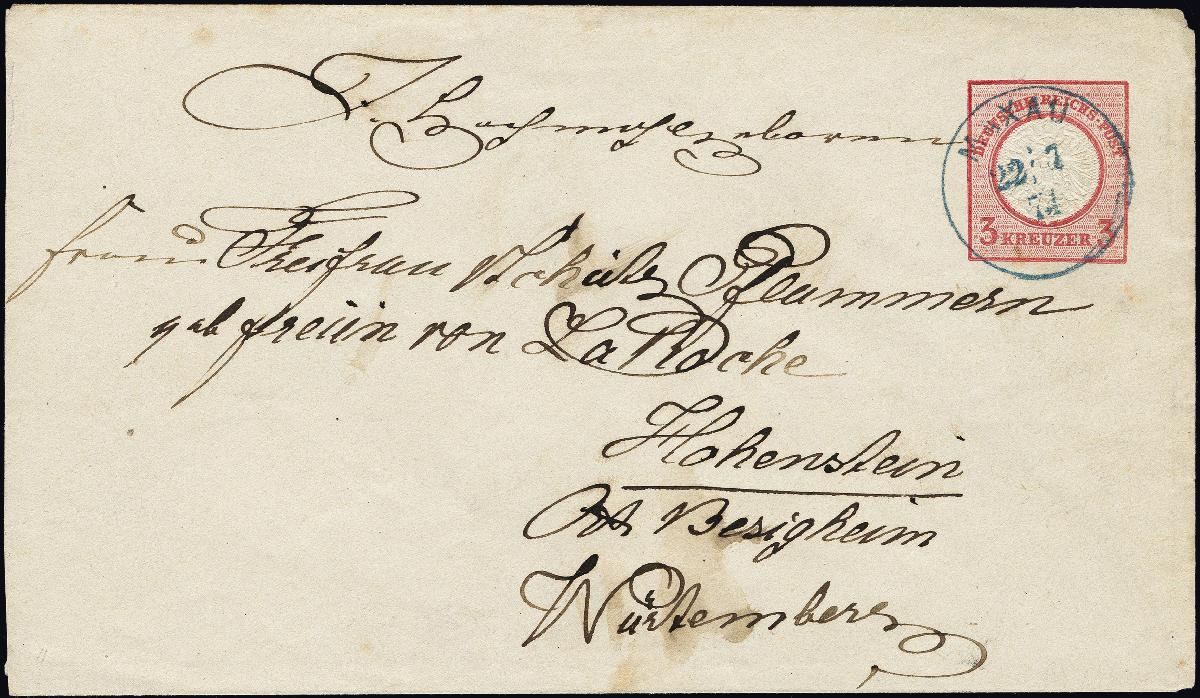 I. Hochwohlgeboren
Frau Freifrau Schütz Pflummern
geb Freiin von La Roche
Hohenstein
OA Besigheim
Würtemberg
MAXAU
22 7
74
DEUTSCHE REICHS-POST
3 KREUZER 3